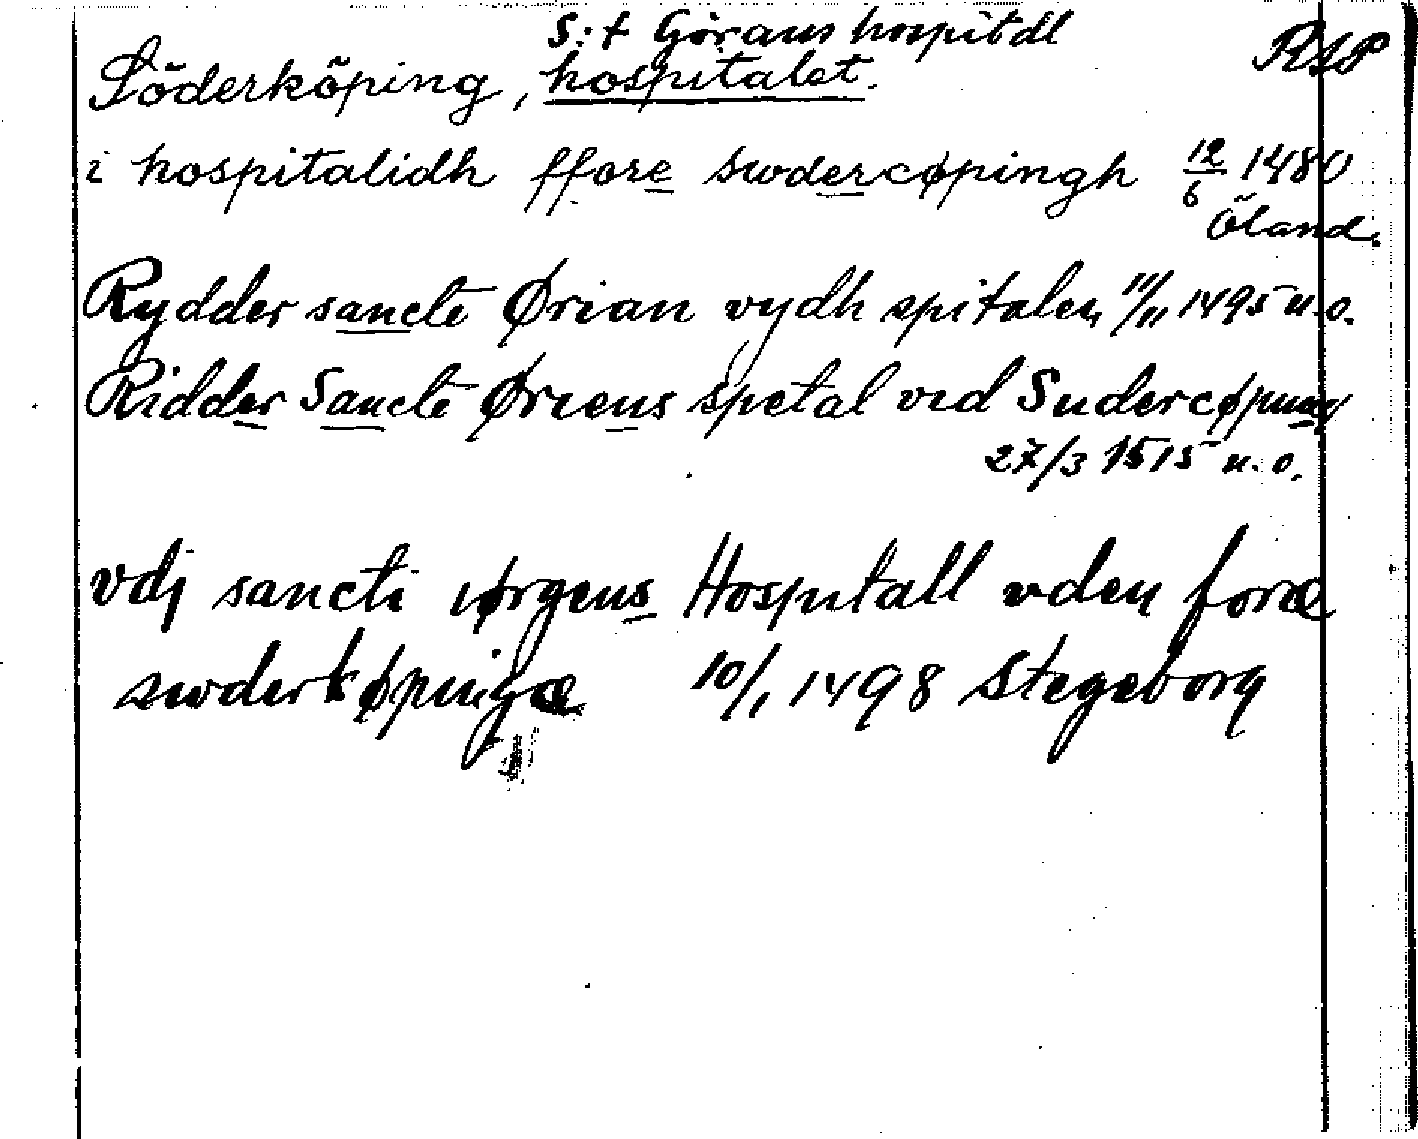 S:t Görans hospital
Söderköping, hospitalet. RAP
i hospitalidh ffore swdercøpingh 12/6 1480
Öland.
Rydder sancte Ørian vydh spitalen 11/11 1495 u.o.
Ridder Sancte Øriens spetal vid Sudercøping
27/3 1515 u.o.
vdj sancti iørgens Hospitall vden foræ
swderkøpingæ 10/1 1498 Stegeborg